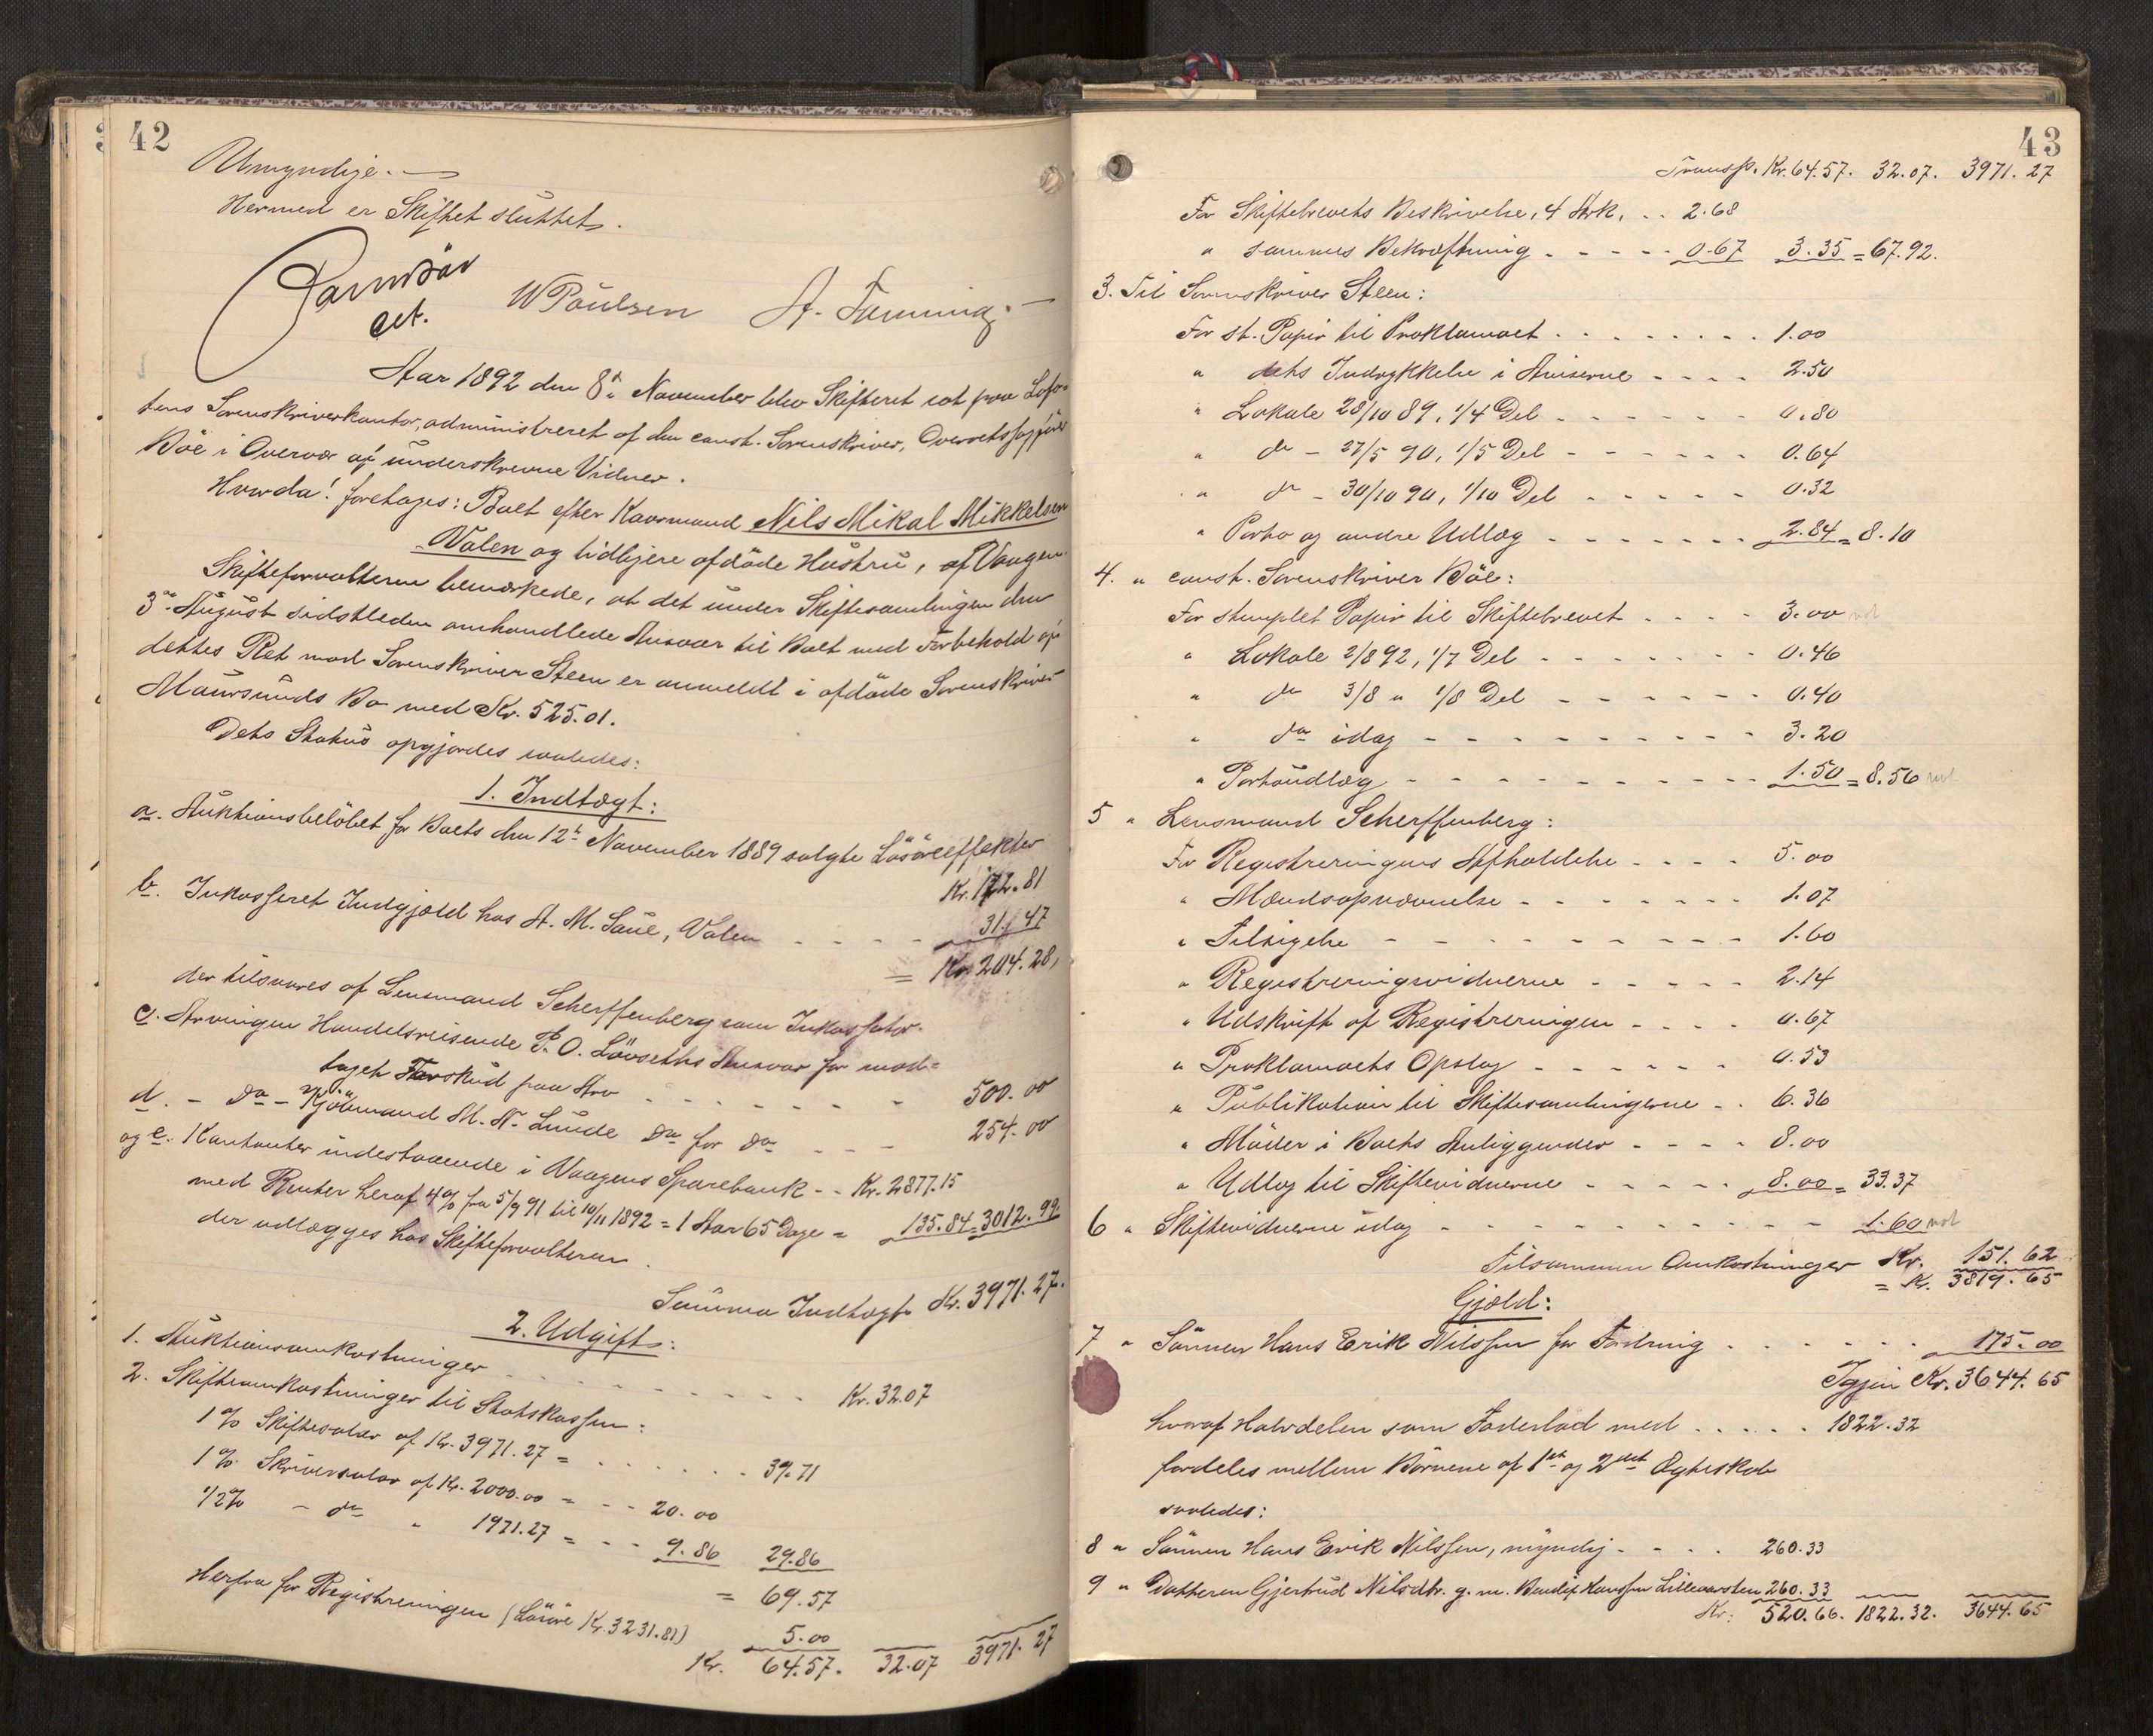 42
Umyndige.
Hermed er Skiftet sluttet.
cst. W Poulsen
Aar 1892 den 8de November blev Skifteret sat paa Lofo-
tens Sorenskriverkontor, administreret af den const. Sorenskriver, Overretssagfører
Böe i Overvær af underskrevne Vidner.
Hvorda! foretages: Boet efter Kaarmand Nils Mikal Mikkelsen
Valen og tidligere afdöde Hustru, af Vaagen.
Skifteforvalteren bemærkede, at det under Skiftesamlingen den
3die August sidstleden omhandlede Ansvar til Boet med Forbehold af
dettes Ret mod Sorenskriver Steen er anmeldt i afdöde Sorenskriver
Maursunds Bo med Kr. 525.01.
Dets Status opgjordes saaledes:
1. Indtægt:
a. Auktionsbelöbet for Boets den 12te November 1889 solgte Lösöreeffekter
Kr. 172.81
b. Inkasseret Indgjæld hos A. M. Saue, Valen - - - - 31.47
= Kr. 204.28,
der tilsvares af Lensmand Scherffenberg som Inkassator.
c. Arvingen Handelsreisende P. O. Lövseths Ansvar for mod-
taget Forskud paa Arv - - - - - - 500.00
d. - do - Kjöbmand M. N. Lunde do for do - - - 254.00
og e. Kontanter indestaaende i Vaagens Sparebank - - Kr. 2877.15
med Renter heraf 4% fra 5/9 91 til 10/11 1892 = 1 Aar 65 Dage = 135.84 = 3012.99
der udlægges hos Skifteforvalteren.
Summa Indtægt Kr. 3971.27.
2. Udgift:
1. Auktionsomkostninger - - - - - - - - - Kr. 32.07
2. Skifteomkostninger til Statskassen:
1% Skiftesalær af Kr. 3971.27 = - - - - - - 39.71
1% Skriversalær af Kr. 2000.00 = - - 20.00
1/2% - do " 1971.27 = - - 9.86 29.86
= 69.57
Herfra for Registreringen (Lösöre Kr. 3231.81) 5.00
Kr. 64.57. 32.07 3971.27
43
Transp. Kr. 64.57. 32.07. 3971.27
For Skiftebrevets Beskrivelse, 4 Ark, . . 2.68
" sammes Bekræftning - - - - - 0.67 3.35 = 67.92.
3. Til Sorenskriver Steen:
For st. Papir til Proklamaet . . . . . . . . 1.00
" dets Indrykkelse i Aviserne - - - - 2.50
" Lokale 28/10 89, 1/4 Del - - - - - - 0.80
" do - 27/5 90, 1/5 Del - - - - - - 0.64
" do - 30/10 90, 1/10 Del - - - - - 0.32
" Porto og andre Udlæg - - - - - - - 2.84 = 8.10
4. " const. Sorenskriver Böe:
For stemplet Papir til Skiftebrevet - - - - 3.00
" Lokale 2/8 92, 1/7 Del - - - - - - - 0.46
" do 3/8 " 1/8 Del - - - - - - 0.40
" do idag - - - - - - - - - - 3.20
" Portoudlæg - - - - - - - - - - - 1.50 = 8.56
5 " Lensmand Scherffenberg:
For Registreringens Afholdelse - - - - 5.00
" Mændsopnævnelse - - - - - - - 1.07
" Tilsigelse - - - - - - - - - - 1.60
" Registreringsvidnerne - - - - - 2.14
" Udskrift af Registreringen - - - - 0.67
" Proklamaets Opslag - - - - - - 0.53
" Publikation til Skiftesamlingerne - . 6.36
" Möder i Boets Anliggender - - - - 8.00
" Udlæg til Skiftevidnerne - - - - - 8.00 = 33.37
6 " Skiftevidnerne idag - - - - - - - - - - - 1.60
Tilsammen Omkostninger Kr. 151.62
= Kr. 3819.65
Gjæld:
7 " Sönnen Hans Erik Nilssen for Fordring . . . . . . 175.00
Igjen Kr. 3644.65
hvoraf Halvdelen som Faderlod med . . . . . 1822.32
fordeles mellem Börnene af 1ste og 2det Ægteskab
saaledes:
8 " Sönnen Hans Erik Nilssen, myndig - - - . 260.33
9 " Datteren Gjertrud Nilsdtr. g. m. Hanssen 260.33
Kr: 520.66. 1822.32. 3644.65